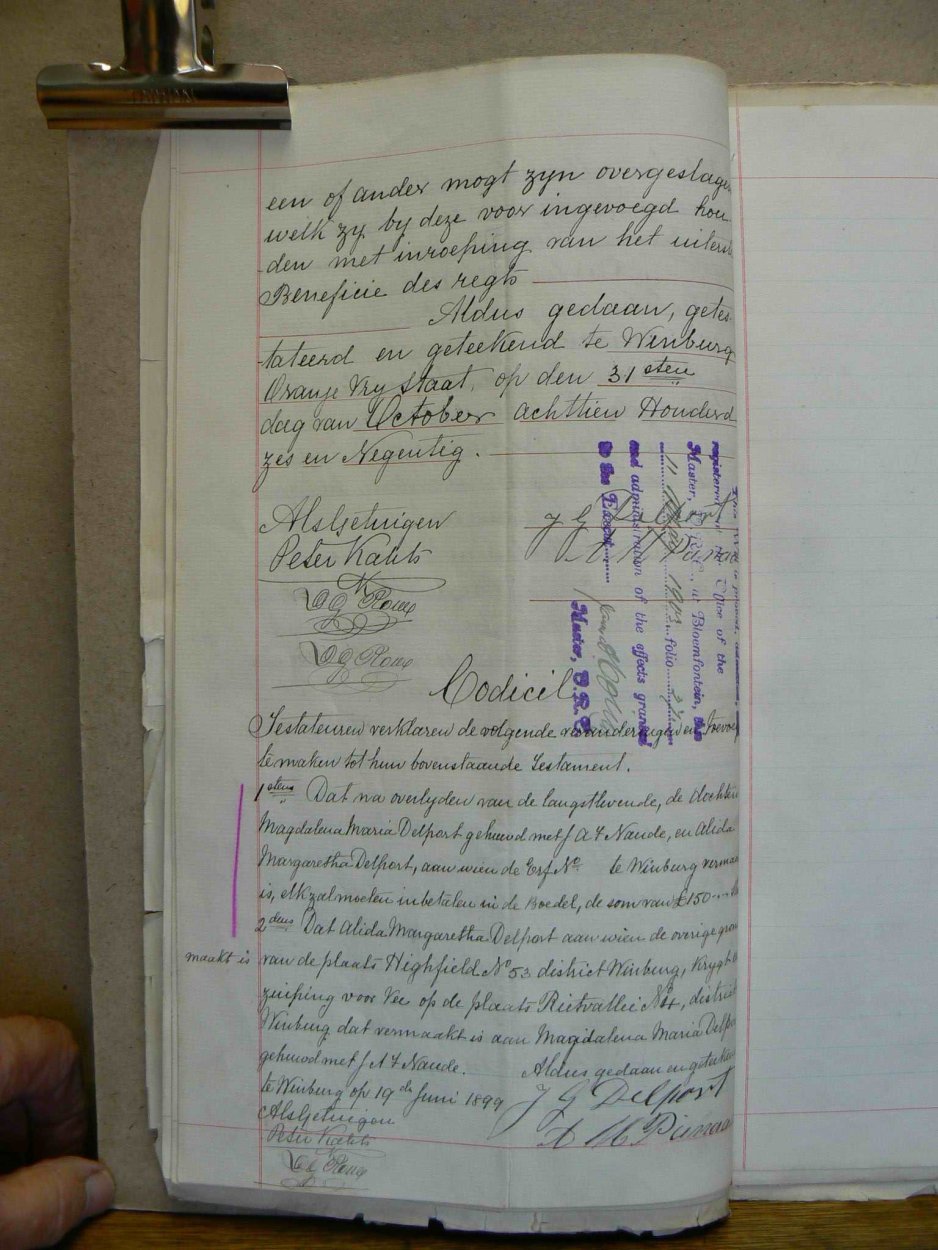 een of ander mogt zyn overgeslagen
welk zy by deze voor ingevoegd hou
den met inroeping van het uiterst
Beneficie des regts
Aldus gedaan, getes
tateerd en geteekend te Winburg
Oranje Vry Staat, op den 31 sten
dag van October achttien Honderd
zes en Negentig.
Als Getuigen
J G Delport
Peter Kahts
registered in the Office of the
Master, at Bloemfontein, this
11 1903 folio
and administration of the effects granted
to the Execut
Master, O.R.C.
Codicil
Testateuren verklaren de volgende veranderingen en toevoe
te maken tot hun bovenstaande Testament.
1 stens Dat na overlyden van de langstlevende, de dochters
Magdalena Maria Delport gehuwd met J A F Naude, en Alida
Margaretha Delport, aan wien de Erf No te Winburg vermaa
is, elk zal moeten inbetalen in de Boedel, de som van £150
2 dens Dat Alida Margaretha Delport aan wien de overige gron
maakt is van de plaats Highfield No 53 district Winburg, krygt
zuiping voor Vee op de plaats Rietvallei district
Winburg dat vermaakt is aan Magdalena Maria Delpo
gehuwd met J A F Naude. Aldus gedaan en geteeken
te Winburg op 19 de Juni 1899
J G Delport
Als Getuigen
Peter Kahts